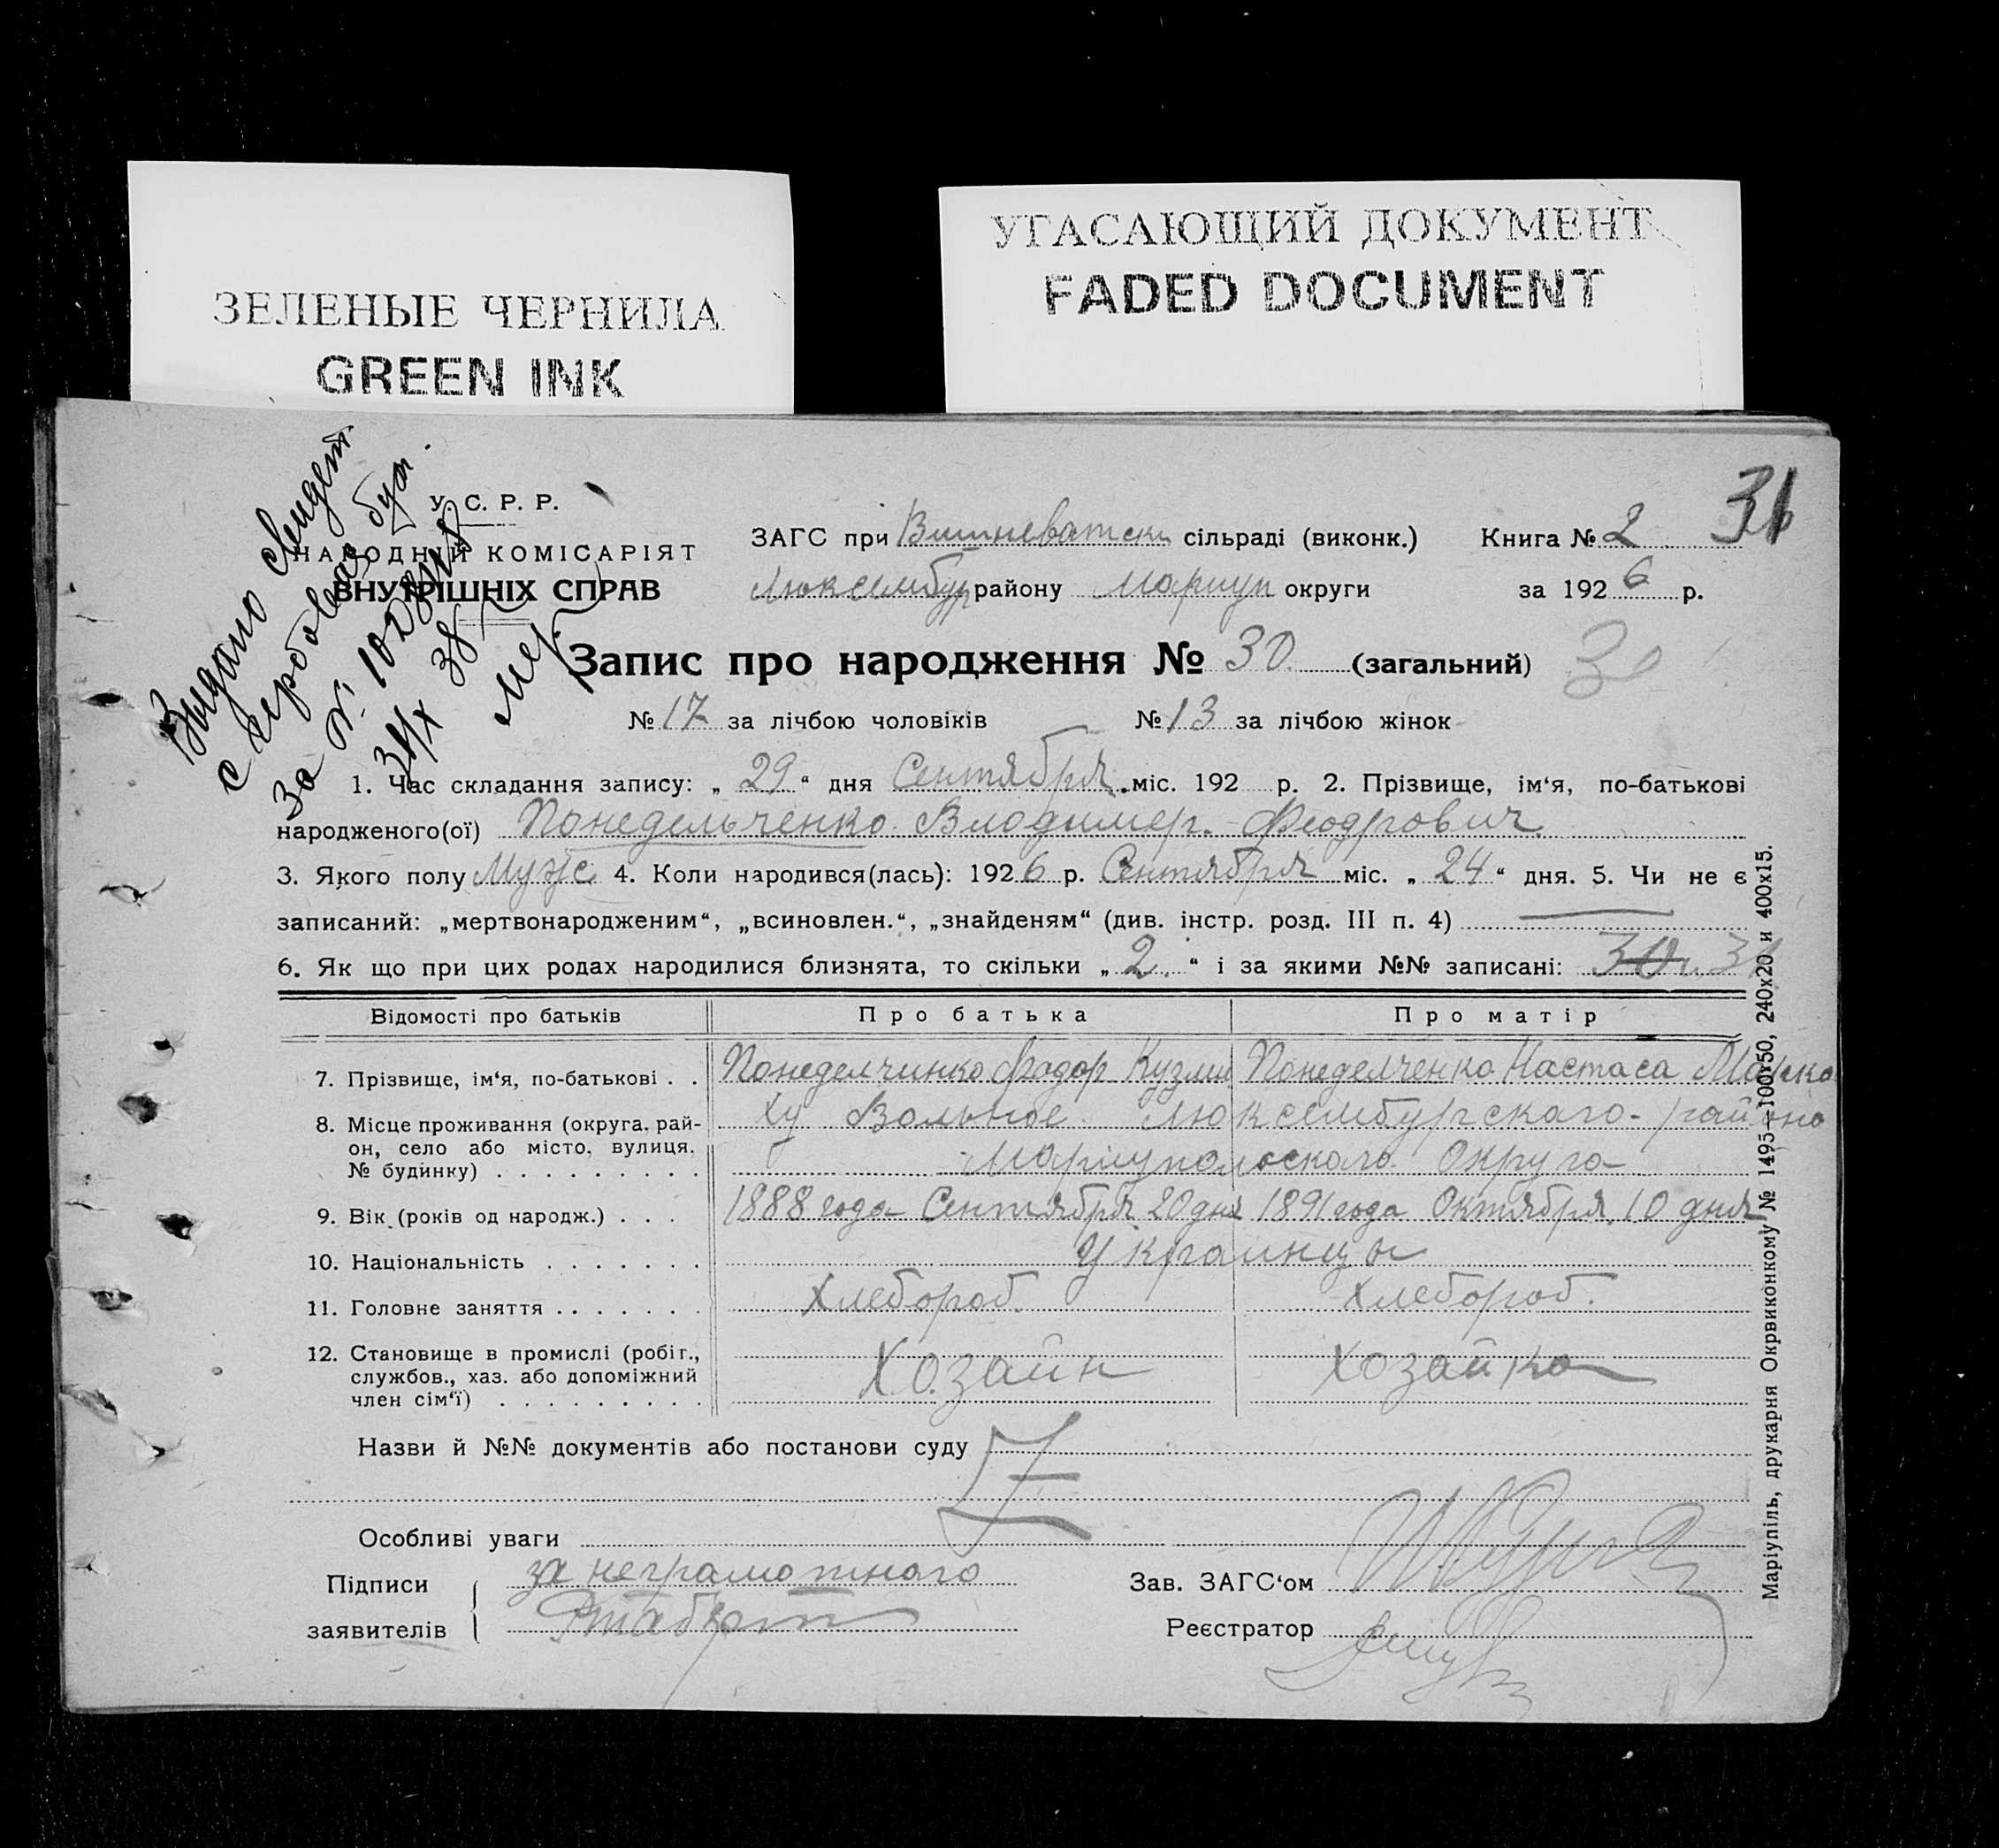 ЗЕЛЕНЫЕ ЧЕРНИЛА
GREEN INK
УГАСАЮЩИЙ ДОКУМЕНТ
FADED DOCUMENT
31
Выдано свидет
за № 102
У. С. Р. Р.
НАРОДНІЙ КОМІСАРІЯТ
ВНУТРІШНІХ СПРАВ
ЗАГС при Вишневатски сільраді (виконк.) Книга № 2
Люксембур району Мариуп округи за 1926 р.
Запис про народження № 30 (загальний) 30
№ 17 за лічбою чоловіків № 13 за лічбою жінок
1. Час складання запису: „ 29 “ дня Сентября міс. 192 р. 2. Прізвище, ім‘я, по-батькові
народженого(ої) Понедельченко Владимер. Феодрович
3. Якого полу Мужс 4. Коли народився(лась): 1926 р. Сентября міс. „ 24 “ дня. 5. Чи не є
записаний: „мертвонародженим“, „всиновлен.“, „знайденям“ (див. інстр. розд. III п. 4)
6. Як що при цих родах народилися близнята, то скільки „ 2 “ і за якими №№ записані: 30 31
Відомості про батьків Про батька Про матір
7. Прізвище, ім‘я, по-батькові . . Понеделчинко Фодор Кузми Понеделченко Настаса
8. Місце проживання (округа, рай-
он, село або місто, вулиця,
№ будинку) . . . . . . . . .
ху Вольное Люксембургскаго району
Мариупольскаго Округа
9. Вік (років од народж.) . . . 1888 года Сентября 20 дня 1891 года Октября 10 дня
10. Національність . . . . . . . Украинцы
11. Головне заняття . . . . . . . Хлебороб. Хлебороб.
12. Становище в промислі (робіг.,
службов., хаз. або допоміжний
член сім‘ї) . . . . . . . . .
Хозаин Хозайка
Назви й №№ документів або постанови суду
Особливі уваги
Підписи
заявителів
за неграмотного
Зав. ЗАГС‘ом
Реєстратор
Маріупіль, друкарня Окрвиконкому № 1495—100х50, 240х20 и 400х15.